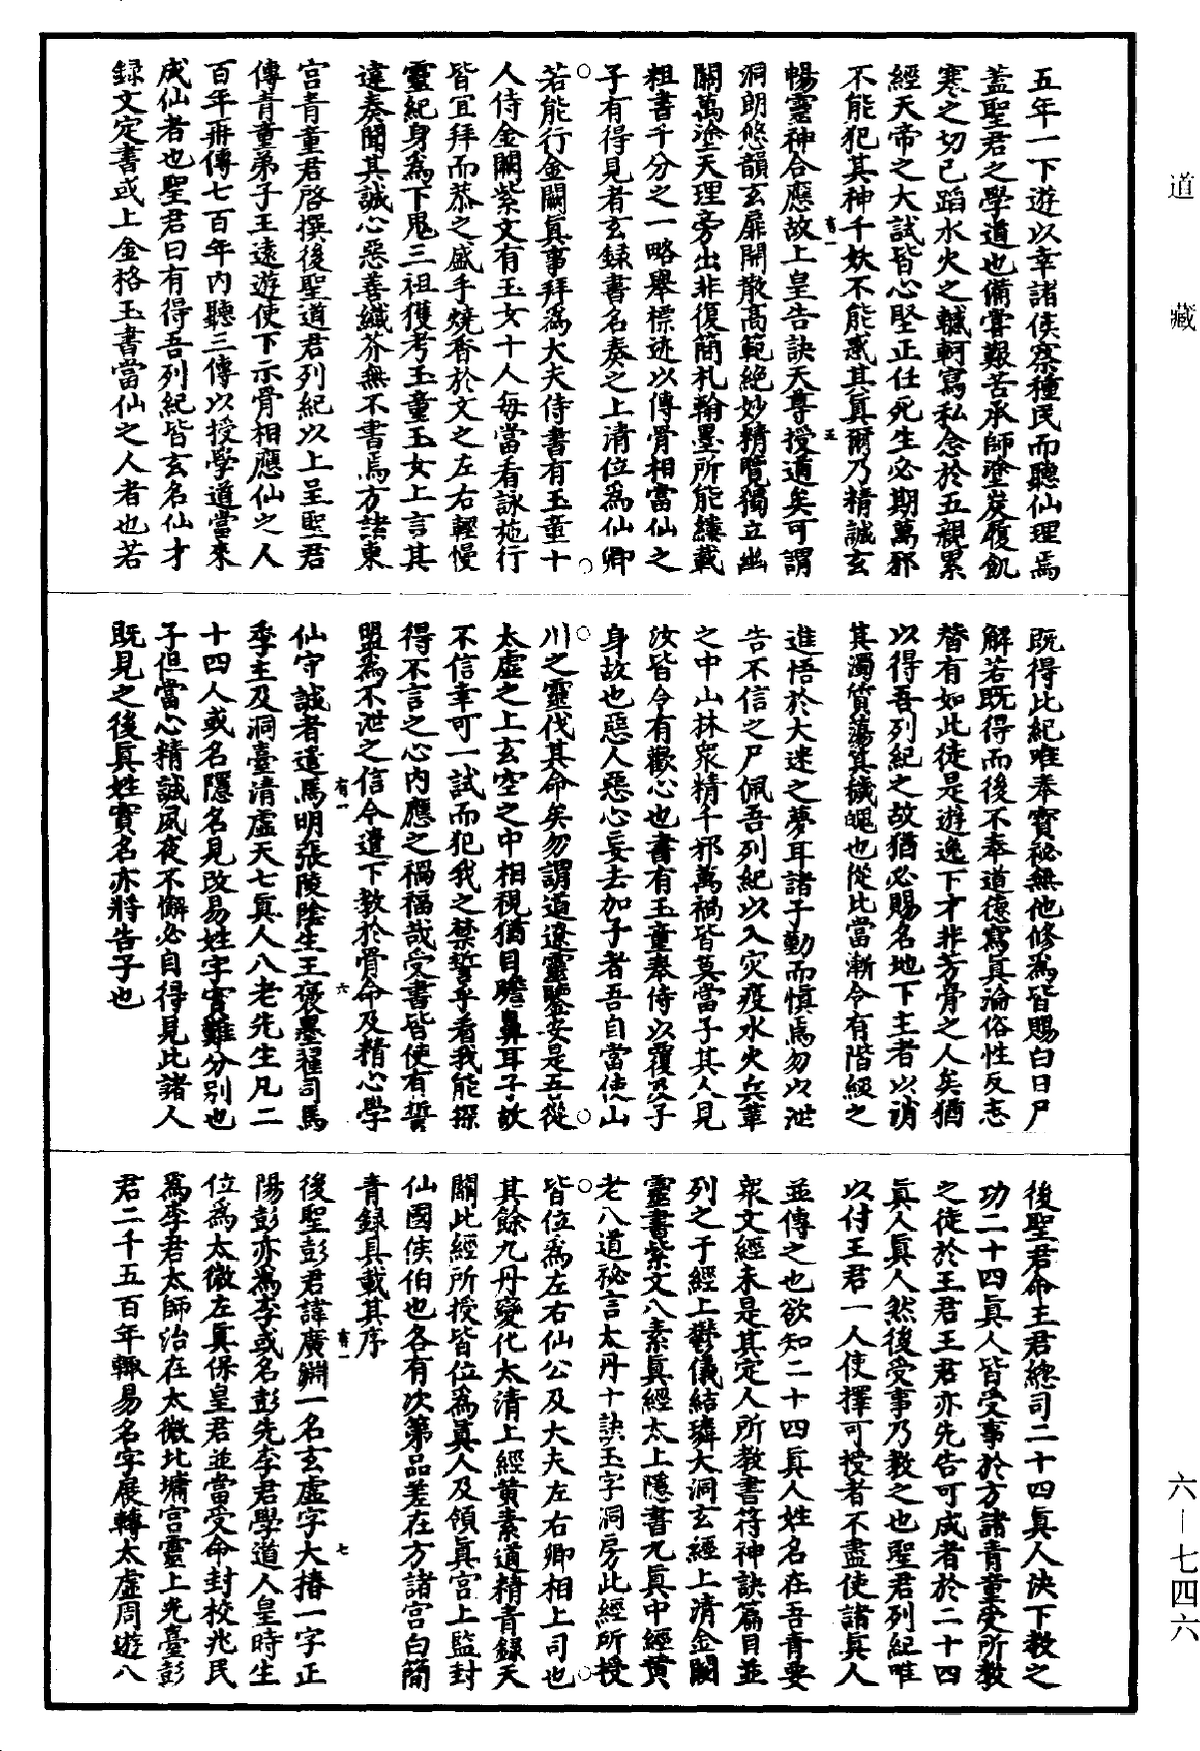 道藏
五年一下遊以幸諸侯察種民而聽仙理焉
蓋聖君之學道也備嘗艱苦承師塗炭履飢
寒之切己蹈水火之轗軻寫私念於五親累
經天帝之大試皆心堅正任死生必期萬邪
不能犯其神千妖不能惑其真爾乃精誠玄
暢靈神合應故上皇告訣天尊授道矣可謂
洞朗悠韻玄扉開散高範絕妙精覽獨立幽
關萬塗天理旁出非復簡札翰墨所能縷載
粗書千分之一略舉標迹以傳骨相當仙之
子有得見者玄錄書名奏之上清位為仙卿
若能行金闕真事拜為大夫侍書有玉童十
人侍金闕紫文有玉女十人每當看詠施行
皆宜拜而恭之盛手燒香於文之左右輕慢
靈紀身為下鬼三祖獲考玉童玉女上言其
違奏聞其誠心惡善纖芥無不書焉方諸東
宮青童君啓撰後聖道君列紀以上呈聖君
傳青童弟子王遠遊使下示骨相應仙之人
百年再傳七百年內聽三傳以授學道當來
成仙者也聖君曰有得吾列紀皆玄名仙才
錄文定書或上金格玉書當仙之人者也若
既得此紀唯奉寶祕無他修為皆賜白日尸
解若既得而後不奉道德寫真淪俗性反志
替有如此徒是遊逸下才非芳骨之人矣猶
以得吾列紀之故猶必賜名地下主者以誚
其濁質蕩其穢魄也從此當漸令有階級之
進悟於大迷之夢耳諸子勤而慎焉勿以泄
告不信之尸佩吾列紀以入灾疫水火兵革
之中山林衆精千邪萬禍皆莫當子其人見
汝皆令有歡心也書有玉童奉侍以覆及子
身故也惡人惡心妄去加子者吾自當使山
川之靈伐其命矣勿謂道遼靈鑒安是五從
太虛之上玄空之中相視猶目瞻鼻耳子故
不信幸可一試而犯我之禁誓乎看我能探
得不言之心內應之禍福哉受書皆使有誓
盟為不泄之信令遣下教於骨命及精心學
仙守誠者遣馬明張陵陰生王褒墨翟司馬
季主及洞臺清虛天七真人八老先生凡二
十四人或名隱名見改易姓字實難分別也
子但當心精誠夙夜不懈必自得見此諸人
既見之後真姓實名亦將告子也
後聖君命王君總司二十四真人決下教之
功二十四真人皆受事於方諸青童受所教
之徒於王君王君亦先告可成者於二十四
真人真人然後受事乃教之也聖君列紀唯
以付王君一人使擇可授者不盡使諸真人
並傳之也欲知二十四真人姓名在吾青要
衆文經末是其定人所教書符神訣篇目並
列之于經上鬱儀結璘大洞玄經上清金闕
靈書紫文八素真經太上隱書九真中經黃
老八道祕言太丹十訣玉字洞房此經所授
皆位為左右仙公及大夫左右卿相上司也
其餘九丹變化太清上經黃素道精青錄天
關此經所授皆位為真人及領真宮上監封
仙國侯伯也各有次第品差在方諸宮白簡
青錄具載其序
後聖彭君諱廣淵一名玄虛字大椿一字正
陽彭亦為李或名彭先李君學道人皇時生
位為太微左真保皇君並當受命封校兆民
為李君太師治在太微北墉宮靈上光臺彭
君二千五百年輒易名字展轉太虛周遊八
六－七四六